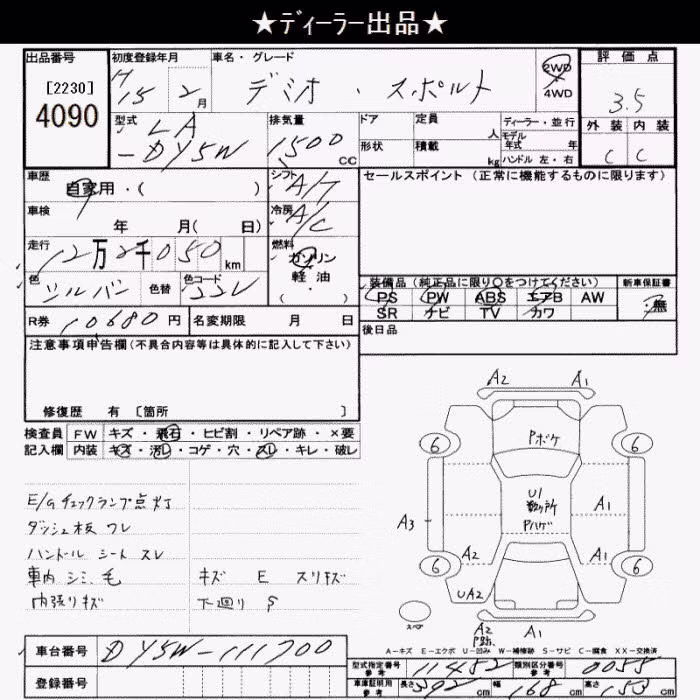 ★ディーラー出品★
出品番号
[2230]
4090
初度登録年月
H15 2月
車名・グレード
デミオ ・ スポルト
2WD
・
4WD
評価点
3.5
外装 内装
C C
型式
LA
-DY5W
排気量
1500
CC
ドア
定員
人
形状
積載
kg
ディーラー・並行
モデル
年式 年
ハンドル 左・右
車歴
自家用・( )
シフト
A/T
セールスポイント (正常に機能するものに限ります)
車検
年 月( 日)
冷房
A/C
走行
12万2千050
km
燃料
ガソリン
軽・油
・
( )
色
シルバー
色替
色コード
22V
装備品 (純正品に限り○をつけてください)
新車保証書
PS PW ABS エアB AW
SR ナビ TV カワ
・無
R券 10680 円
名変期限 月 日
後日品
注意事項申告欄 (不具合内容等は具体的に記入して下さい)
修復歴 有 [箇所 ]
検査員 FW キズ・飛石・ヒビ割・リペア跡・×要
記入欄 内装 キズ・汚レ・コゲ・穴・スレ・キレ・破レ
E/Gチェックランプ点灯
ダッシュ板 ワレ
ハンドル シート スレ
車内 シミ、毛
内張りキズ
キズ E スリキズ
下廻り S
A2 A1
Pボケ
6 6
U1
数ヶ所
Pハゲ
A1
A3
A2 A1
6 6
UA2
スペア
A2
A1
A-キズ E-エクボ U-凹み W-補修跡 S-サビ C-腐食 XX-交換済
車台番号 DY5W-111700
登録番号
型式指定番号
参考
11452
類別区分番号
参考
0055
車庫証明用
参考
長さ 392 cm
幅 168 cm
高さ 153 cm